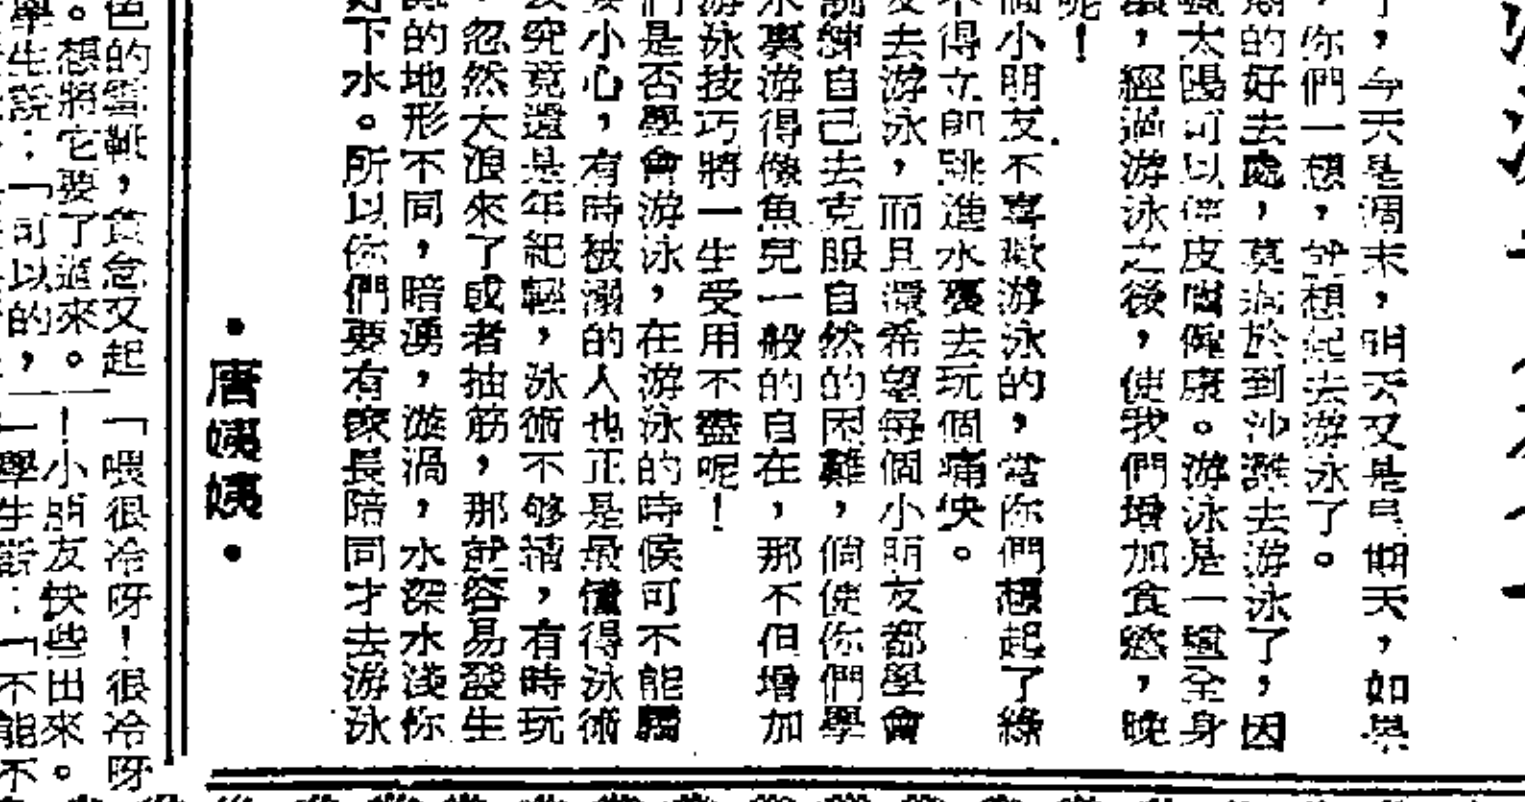 ，今天是週末，明天又是星期天，如果
，你們一想，就想起去游泳了。
的好去處，莫過於到沙灘去游泳了，因
太陽可以使皮膚健康。游泳是一種全身
，經過游泳之後，使我們增加食慾，晚
呢！
個小朋友不喜歡游泳的，當你們想起了綠
不得立即跳進水裏去玩個痛快。
友去游泳，而且還希望每個小朋友都學會
訓練自己去克服自然的困難，倘使你們學
水裏游得像魚兒一般的自在，那不但增加
游泳技巧將一生受用不盡呢！
們是否學會游泳，在游泳的時候可不能
要小心，有時被溺的人也正是最懂得泳術
究竟還是年紀輕，泳術不够精，有時玩
，忽然大浪來了或者抽筋，那就容易發生
的地形不同，暗湧，漩渦，水深水淺你
好下水。所以你們要有家長陪同才去游泳
•唐姨姨•
色的雪靴，貪念又起
。想將它要了過來。
學生說：「可以的，
「喂很冷呀！很冷呀
！小朋友快些出來。
學生答：「不能不